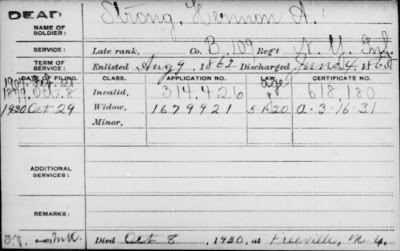 DEAD
NAME OF SOLDIER: Strong, Hermon A.
SERVICE: Late rank, Co. B, 109 Reg't N. Y. Inf.
TERM OF SERVICE: Enlisted Aug 9, 1862 Discharged June 4, 1865
DATE OF FILING. CLASS. APPLICATION NO. LAW. CERTIFICATE NO.
Oct. 8 Invalid, 314,426 Age 618,180
1920 Oct 29 Widow, 1679921 5/1/20 a-3-16-31
Minor,
ADDITIONAL SERVICES:
REMARKS:
Died Oct 8, 1920, at Freeville, N. Y.